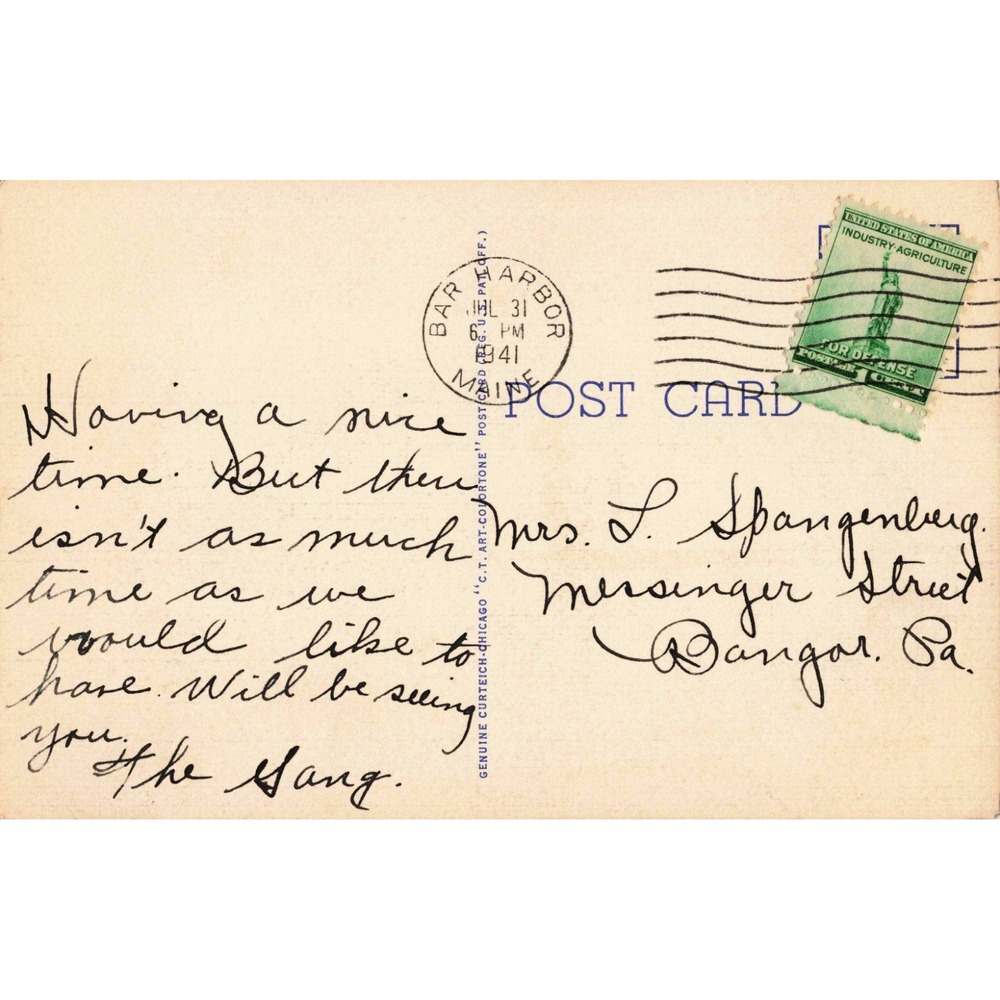 UNITED STATES OF AMERICA
INDUSTRY·AGRICULTURE
FOR DEFENSE
POSTAGE 1 CENT
BAR HARBOR
JUL 31
6 PM
1941
MAINE
POST CARD
GENUINE CURTEICH-CHICAGO "C.T. ART-COLORTONE" POST CARD (REG. U.S. PAT. OFF.)
Having a nice
time. But there
isn't as much
time as we
would like to
have. Will be seeing
you.
The Gang.
Mrs. L. Spangenberg.
Messinger Street
Bangor. Pa.